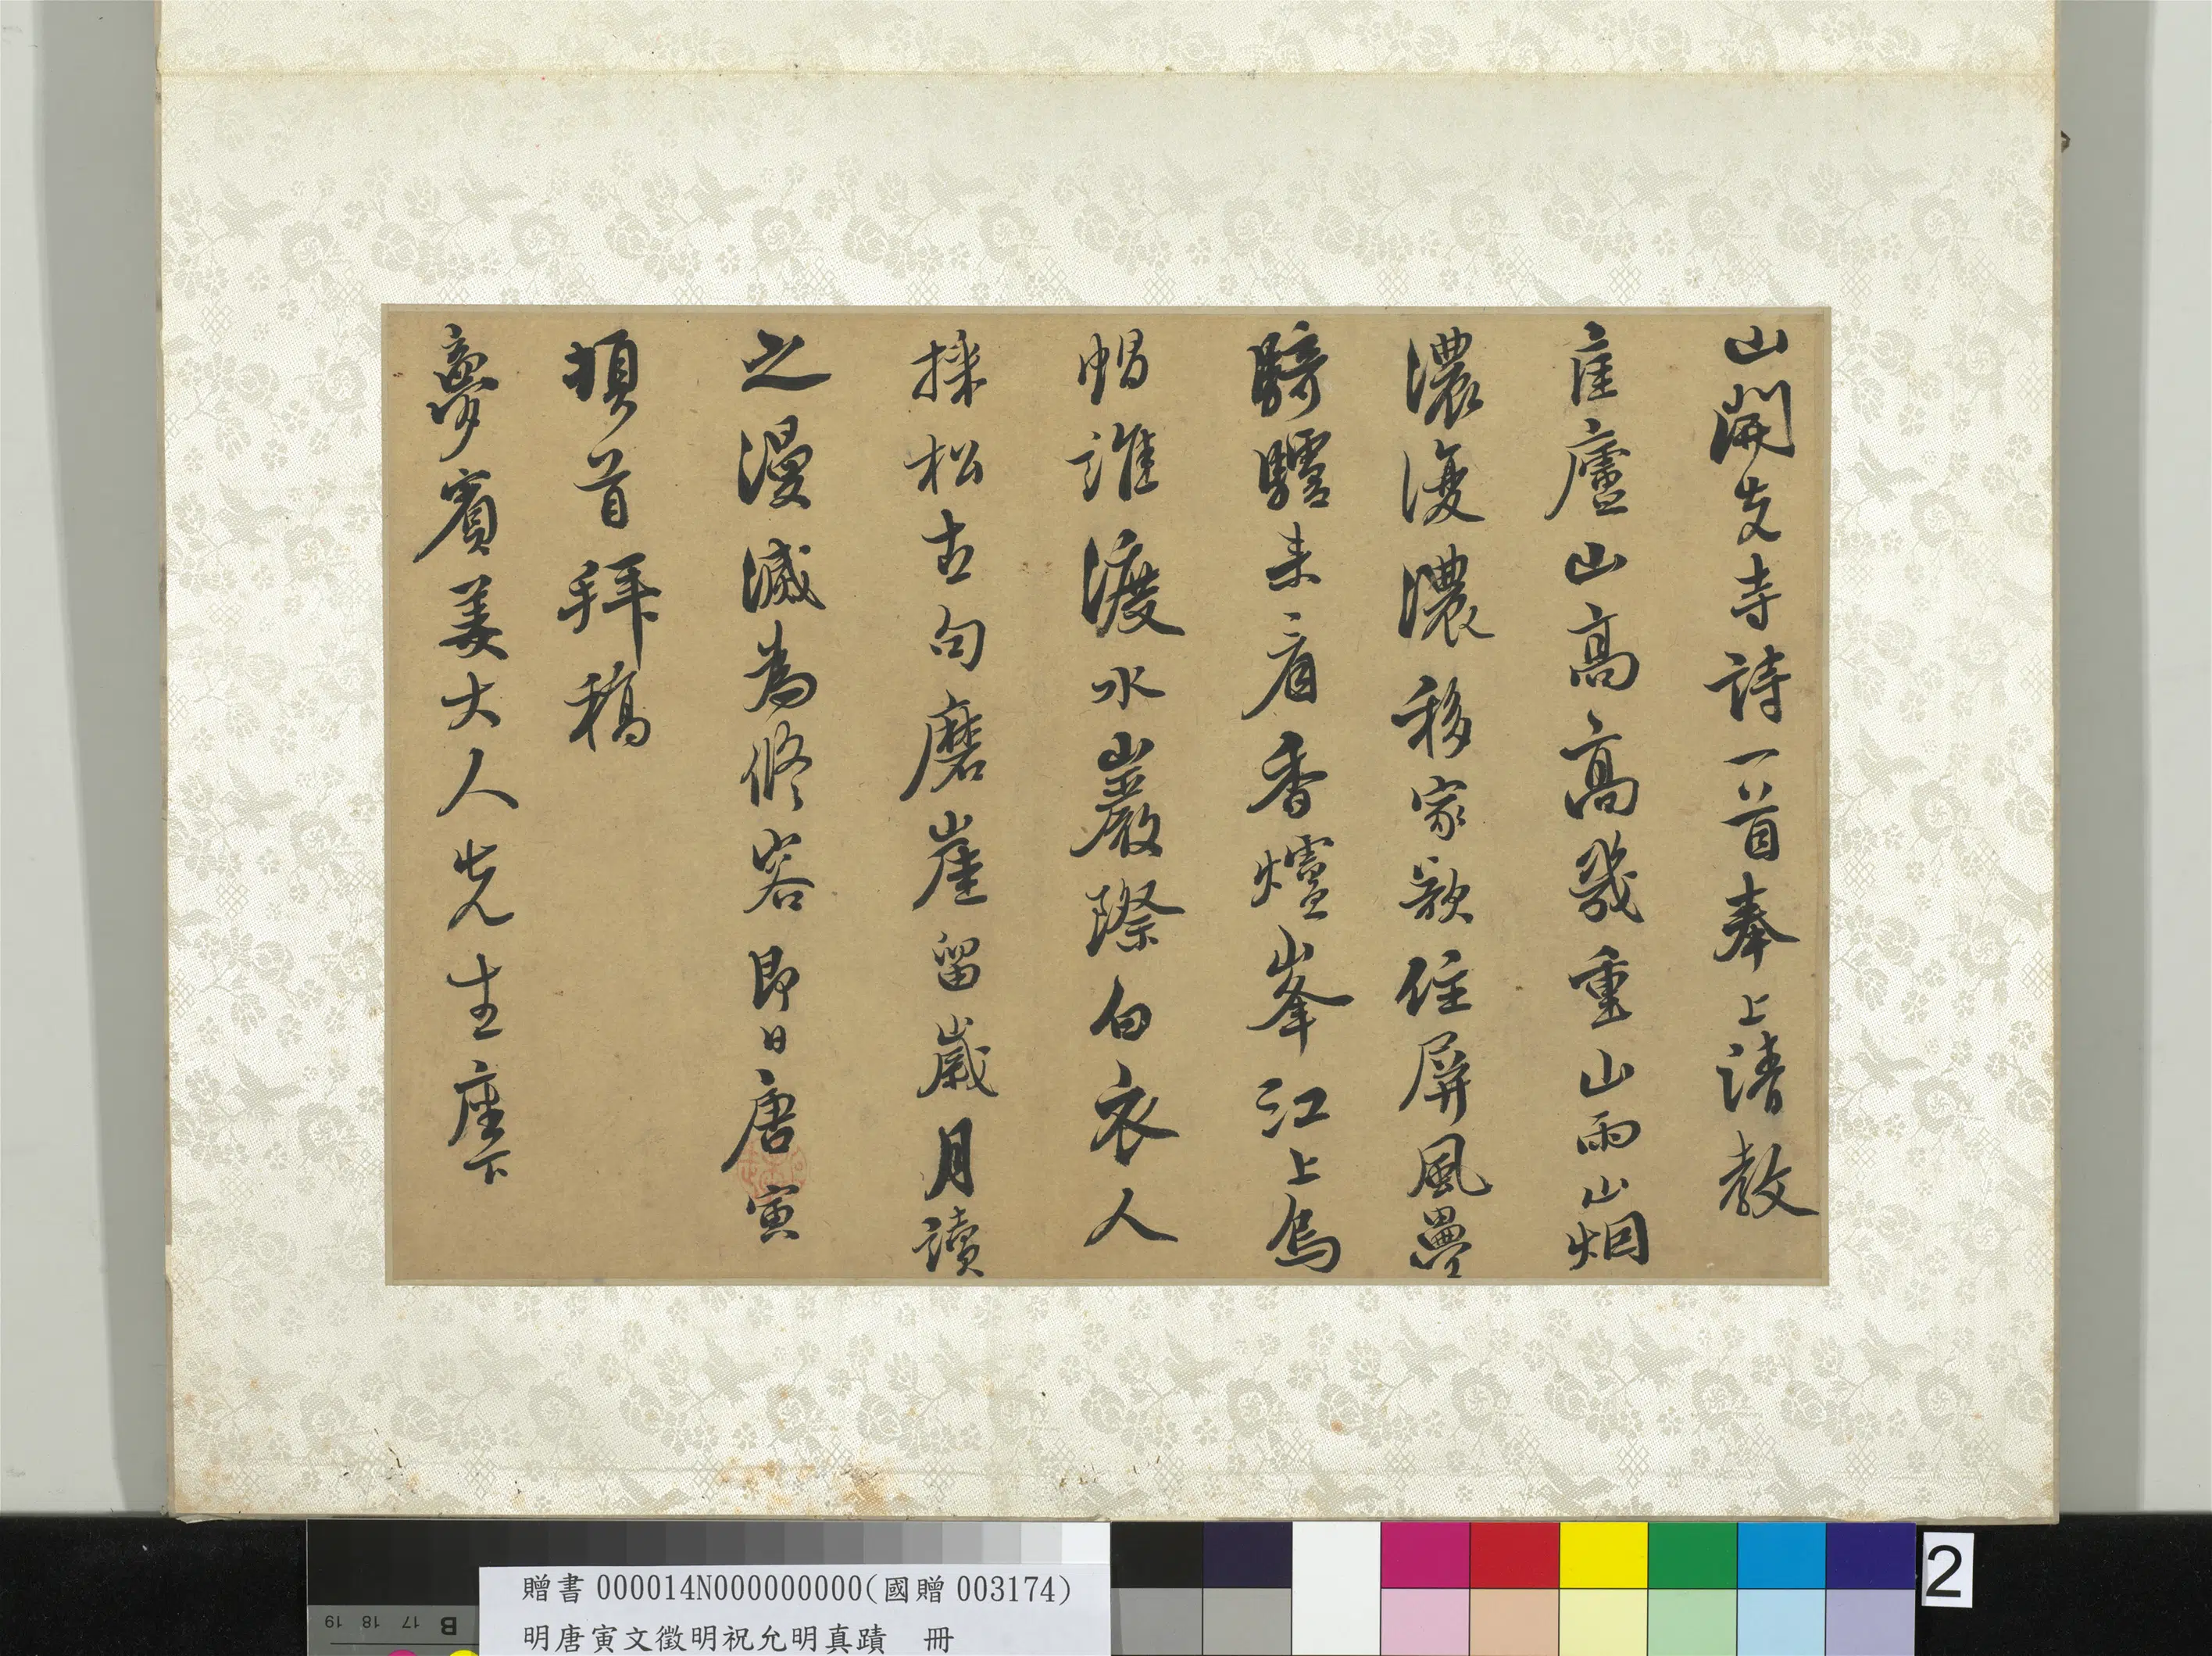 山開先寺詩一首奉上請教
匡廬山高高幾重山雨山烟
濃復濃移家欲住屏風疊
騎驢來看香爐峯江上烏
帽誰渡水巖際白衣人
採松古句磨崖留歲月讀
之漫滅為修容即日唐寅
頓首拜稿
夢賓姜大人先生座下
贈書 000014N000000000(國贈 003174)
明唐寅文徵明祝允明真蹟 冊
2
B 17 18 19